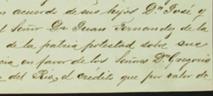 acuerdo de sus hijos Dn. José y
Señor Dn. Juan Fernandez de la
de la patria potestad sobre sus
cia en favor de los Señores Dn. Gregorio
del Rio, el crédito que por valor de